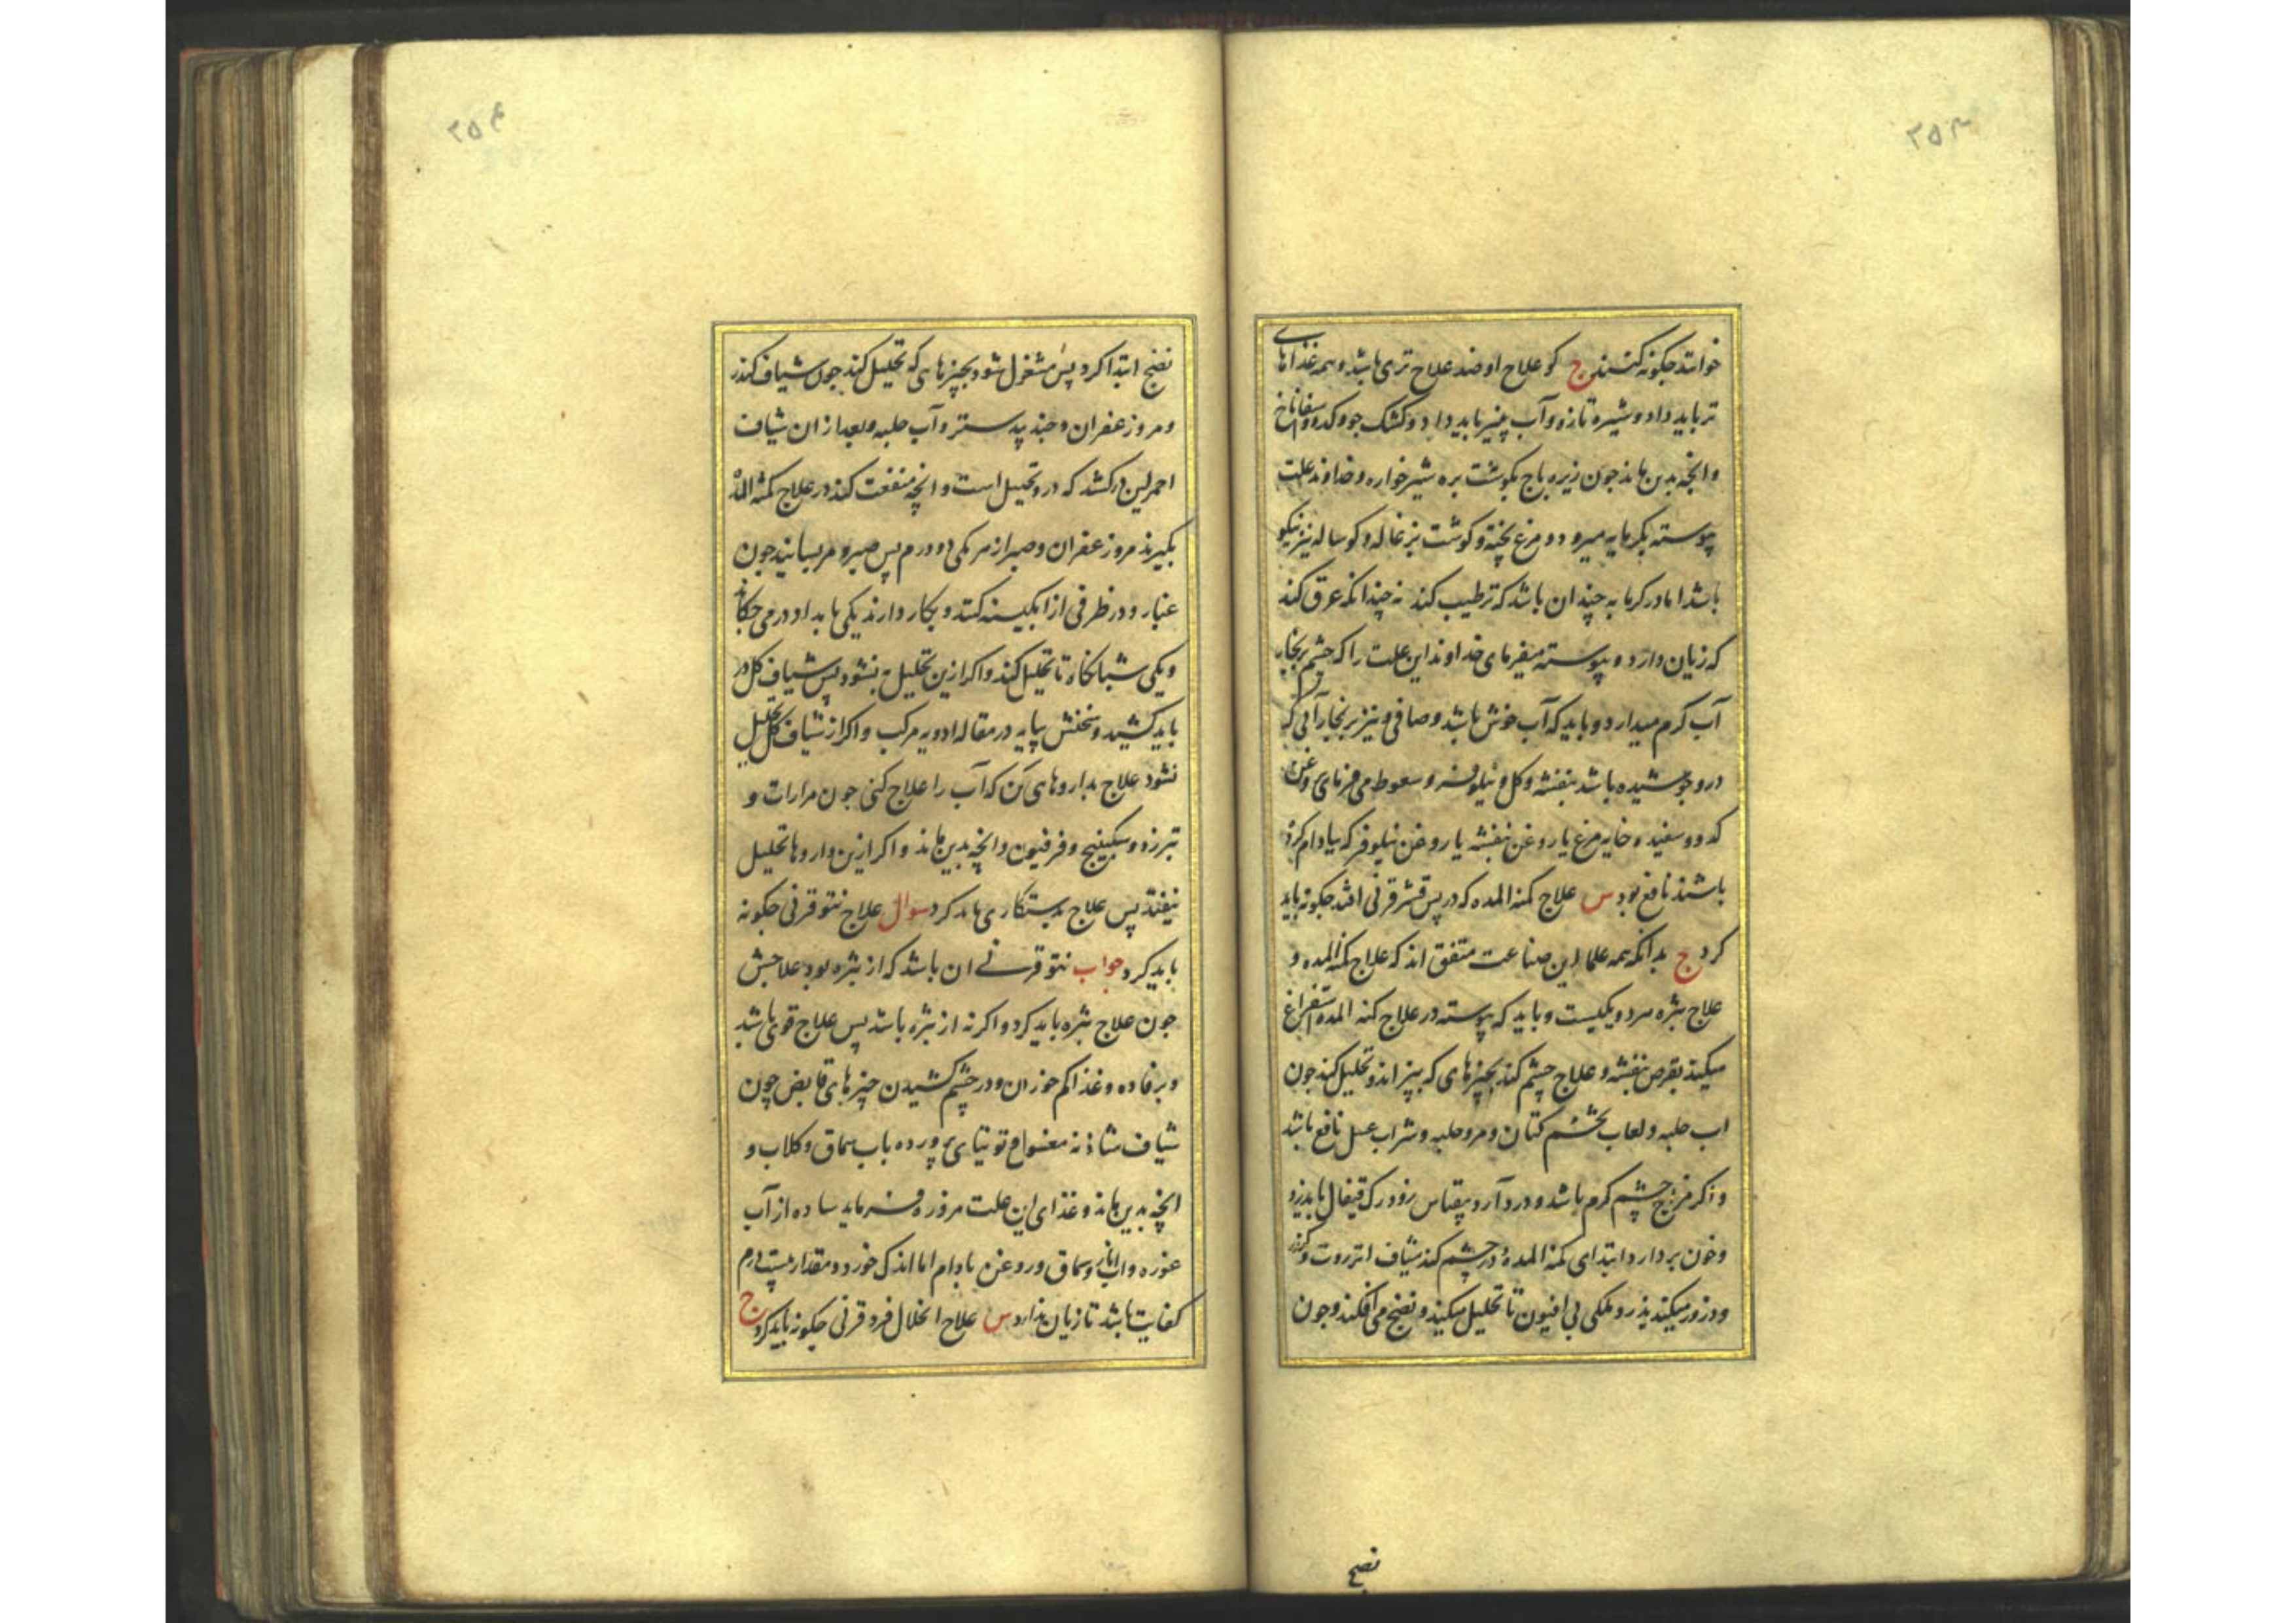 ۲۵۳
خوانند چکونه کنند ج کو علاج او ضد علاج تری باشد و همه غذاهای
تر باید داد و شیره تازه و آب پنیر باید داد و کشک جو و کدو و اسفاناخ
و انچه بدین ماند جون زیره باج بکوشت بره شیرخواره و خداوند علت
پیوسته بکرمابه میرود و مرغ پخته و کوشت بزغاله و کوساله نیز نیکو
باشد اما در کرمابه چندان باشد که ترطیب کند نه چندانکه عرق کند
که زیان دارد و پیوسته میفرمای خداوند این علت را که چشم بر بخار
آب کرم میدارد و باید که آب خوش باشد و صافی و نیز بر بخار آبی که
درو جوشیده باشد بنفشه و کل و نیلوفر و سعوط می فرمای روغن
کدو و سفیده خایه مرغ یا روغن بنفشه یا روغن نیلوفر که ببادام کرده
باشند نافع بود س علاج کمنه المده که در پس قشر قرنی افتد چکونه باید
کرد ج بدانکه همه علما این صناعت متفق اند که علاج کمنه المده و
علاج بثره هردو یکیست و باید که پیوسته در علاج کمنه المده استفراغ
میکند بقرص بنفشه و علاج چشم کند بچیزهای که بپزاند و تحلیل کند جون
اب حلبه و لعاب تخم کتان و مرو حلبه و شراب عسل نافع باشد
و اکر مزاج چشم کرم باشد و درد آرد بیقیاس زود رک قیفال باید زد
و خون بردارد ابتدای کمنه المده در چشم کند شیاف انزروت و کندر
و ذرور میکند بذرور ملکی بی افیون تا تحلیل میکند و نضج می افکند و جون
نضج
۲۵۴
نضج ابتدا کرد پس مشغول شود بچیزهای که تحلیل کند جون شیاف کندر
و مر و زعفران و جند پدستر و آب حلبه و بعد از ان شیاف
احمر لین در کشد که درو تحلیل است و انچه منفعت کند در علاج کمنه المده
بکیرند مر و زعفران و صبر از هر یکی دو درم پس صبر و مر بسایند جون
غبار و در ظرفی از ابکینه کنند و بکار دارند یکی بامداد در می چکاند
و یکی شبانکاه تا تحلیل کند و اکر ازین تحلیل نشود پس شیاف کل در
باید کشید و نسختش بیاید در مقاله ادویه مرکب و اکر از شیاف کل تحلیل
نشود علاج بداروهای کن که آب را علاج کنی جون مرارات و
تبرزد و سکبینج و فرفیون و انچه بدین ماند و اکر ازین داروها تحلیل
نیفتد پس علاج بدستکاری باید کرد سوال علاج نتو قرنی چکونه
باید کرد جواب نتو قرنی ان باشد که از بثره بود علاجش
جون علاج بثره باید کرد و اکر نه از بثره باشد پس علاج قوی باشد
و برفاده و غذا کم خوردن و در چشم کشیدن چیزهای قابض چون
شیاف شاذنه مغسول و توتیای پرورده باب سماق و کلاب و
انچه بدین ماند و غذای این علت مزوره فرماید ساده از آب
غوره و اب انار و سماق و روغن بادام اما اندک خورد و مقدار بیست درم
کفایت باشد تا زیان ندارد س علاج انحلال فرد قرنی چکونه باید کرد ج